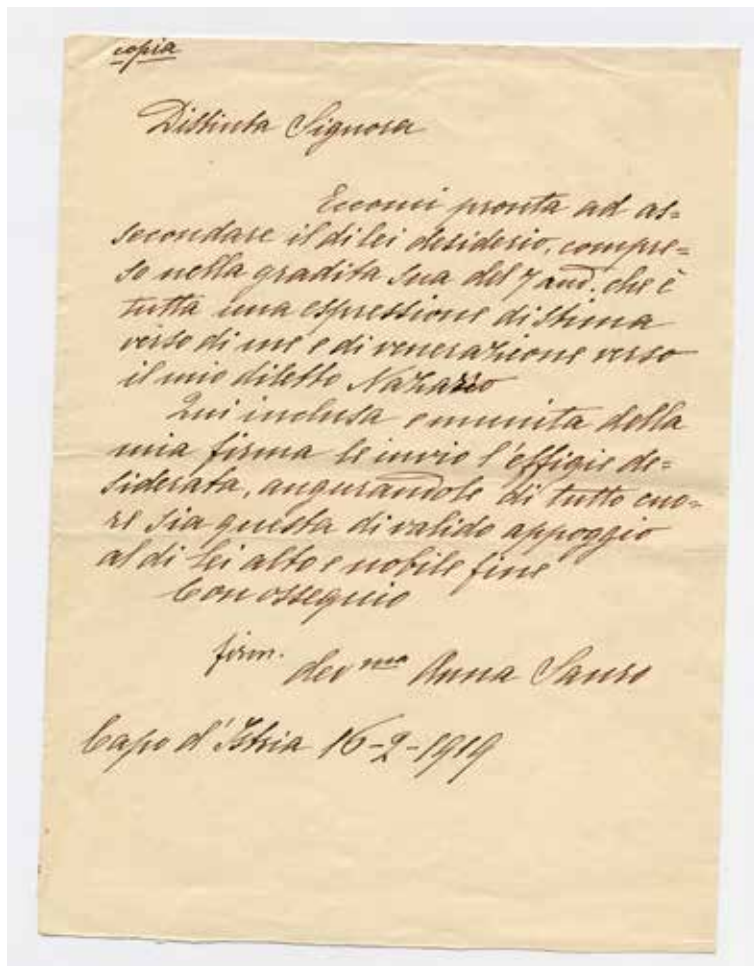 copia
Distinta Signora
Eccomi pronta ad as=
secondare il di lei desiderio, compre=
so nella gradita sua del 7 and. che è
tutta una espressione di stima
verso di me e di venerazione verso
il mio diletto Nazario
Qui inclusa e munita della
mia firma le invio l'effigie de=
siderata, augurandole di tutto cuo=
re sia questa di valido appoggio
al di lei alto e nobile fine
Con ossequio
firm. dev ma Anna Sauro
Capo d'Istria 16-2-1919